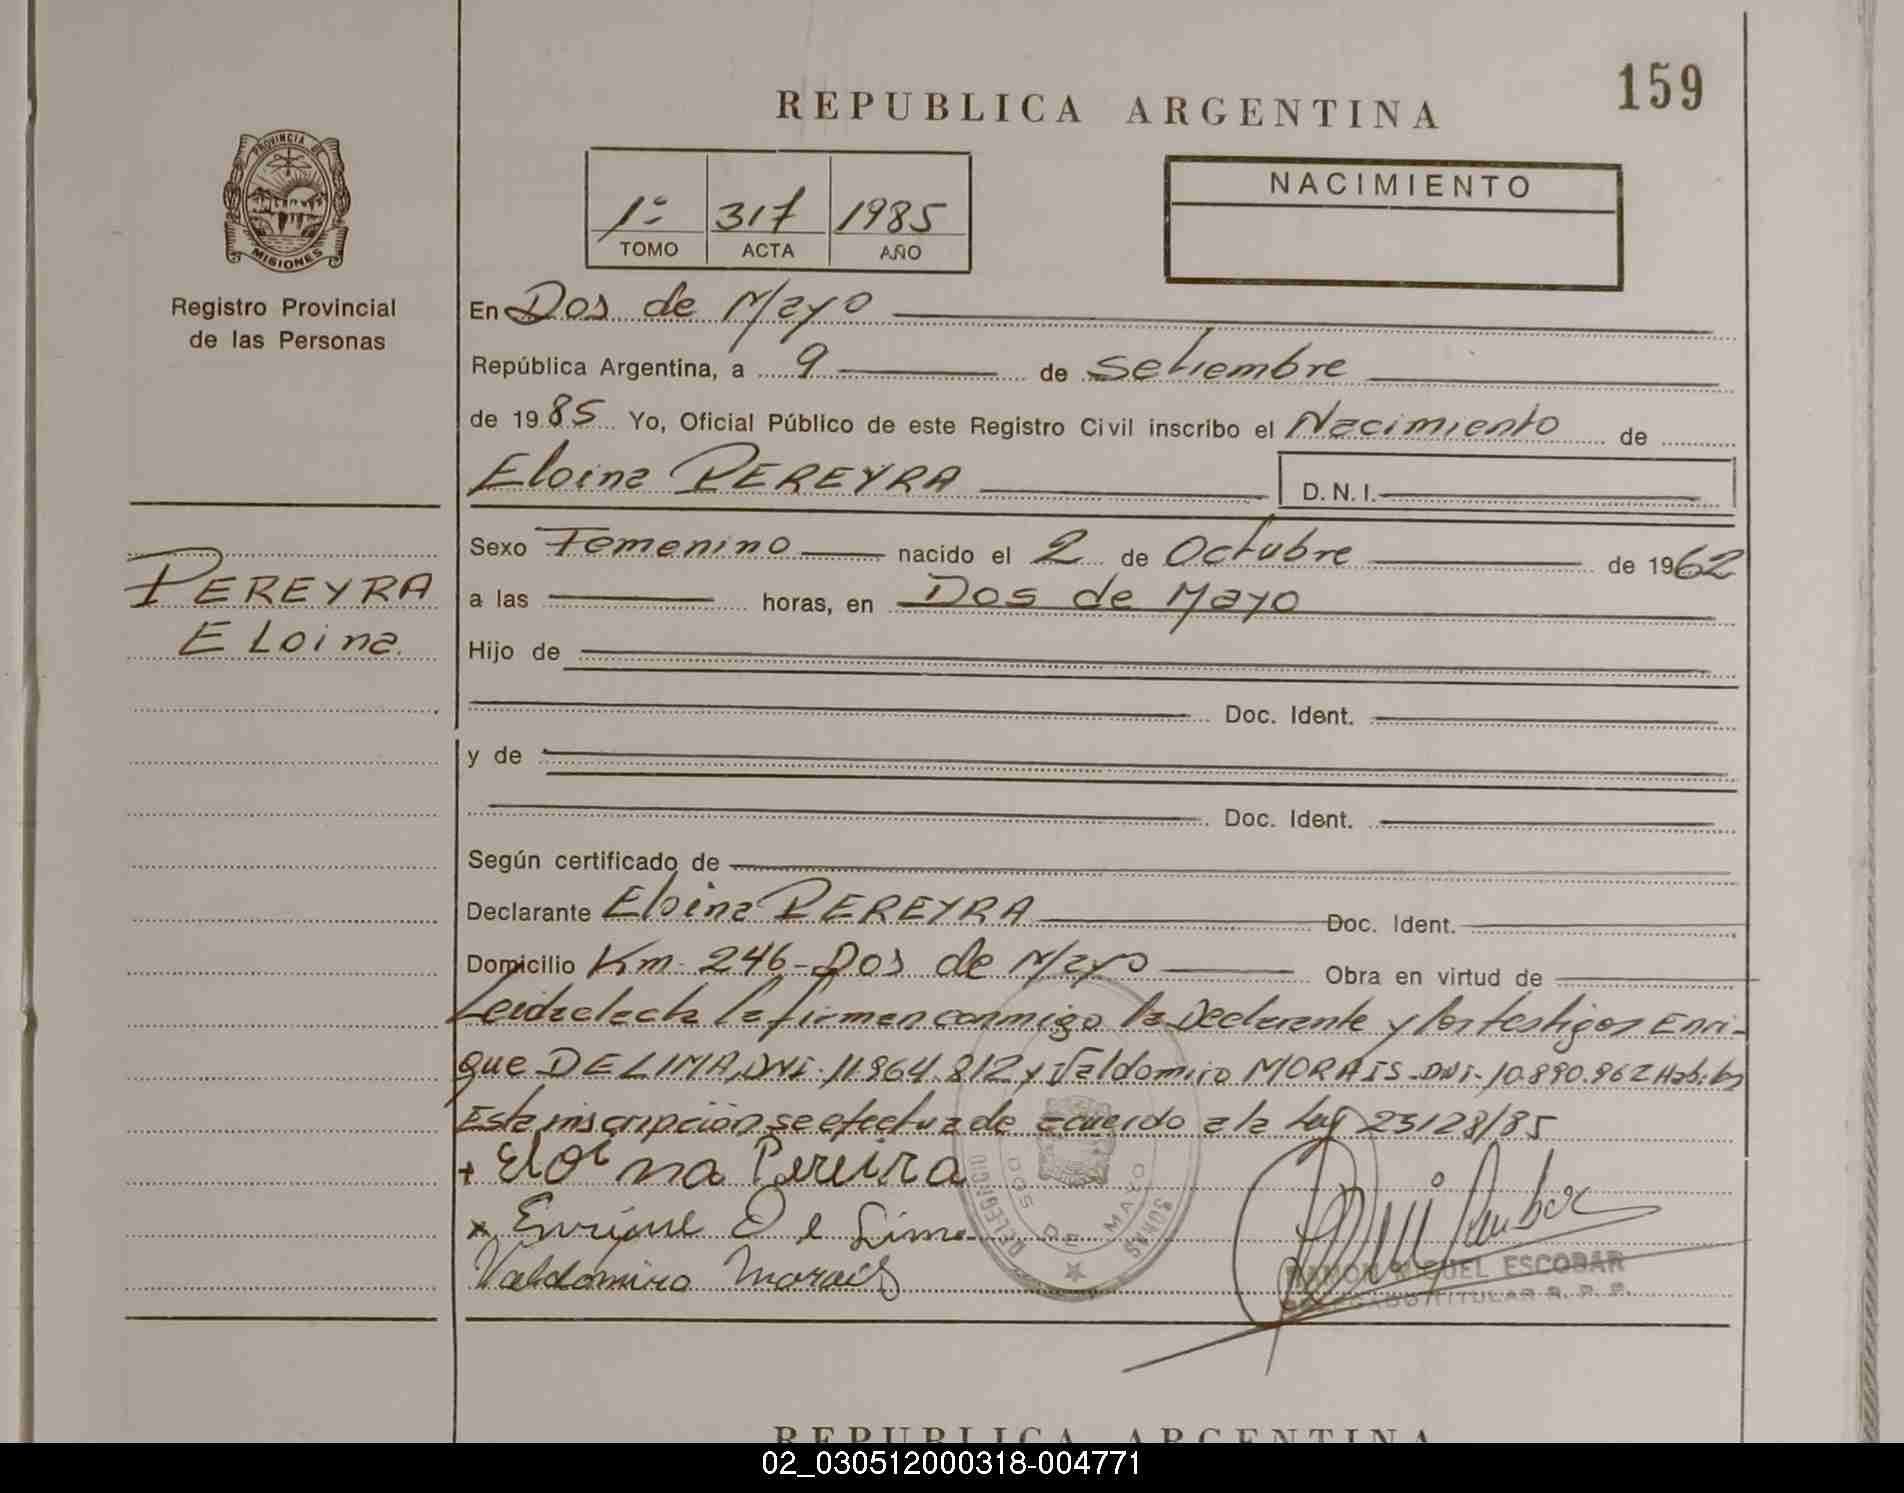 159
REPUBLICA ARGENTINA
PROVINCIA DE
MISIONES
Registro Provincial
de las Personas
1º 317 1985
TOMO ACTA AÑO
NACIMIENTO
En Dos de Mayo
República Argentina, a 9 de setiembre
de 1985 Yo, Oficial Público de este Registro Civil inscribo el Nacimiento de
Eloina PEREYRA D.N.I.
PEREYRA
Eloina.
Sexo Femenino nacido el 2 de Octubre de 1962
a las horas, en Dos de Mayo
Hijo de
Doc. Ident.
y de
Doc. Ident.
Según certificado de
Declarante Eloina PEREYRA Doc. Ident.
Domicilio Km. 246-Dos de Mayo Obra en virtud de
Leida el acta la firman conmigo la Declarante y los testigos Enri-
que DE LIMA, DNI. 11.864.812 y Valdomiro MORAIS-DNI-10.890.962
Esta inscripción se efectua de acuerdo a la Ley 23128/85
+ Eloi na Pereira
x Enrique De Lima
Valdomiro Morais
DELEGACIO
DOS DE MAYO
RAMON MIGUEL ESCOBAR
DELEGADO TITULAR R. P. P.
REPUBLICA ARGENTINA
02_030512000318-004771